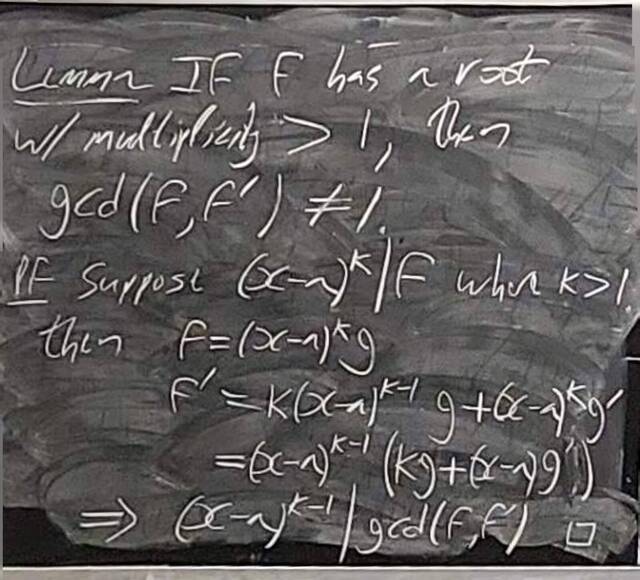 Lemma IF F has a root
w/ multiplicity > 1, then
gcd(F,F') ≠ 1.
PF Suppose (x-r)^k | F where k>1.
then F=(x-r)^k g
F' = k(x-r)^{k-1} g + (x-r)^k g'
=(x-r)^{k-1} (kg+(x-r)g')
⇒ (x-r)^{k-1} | gcd(F,F') □